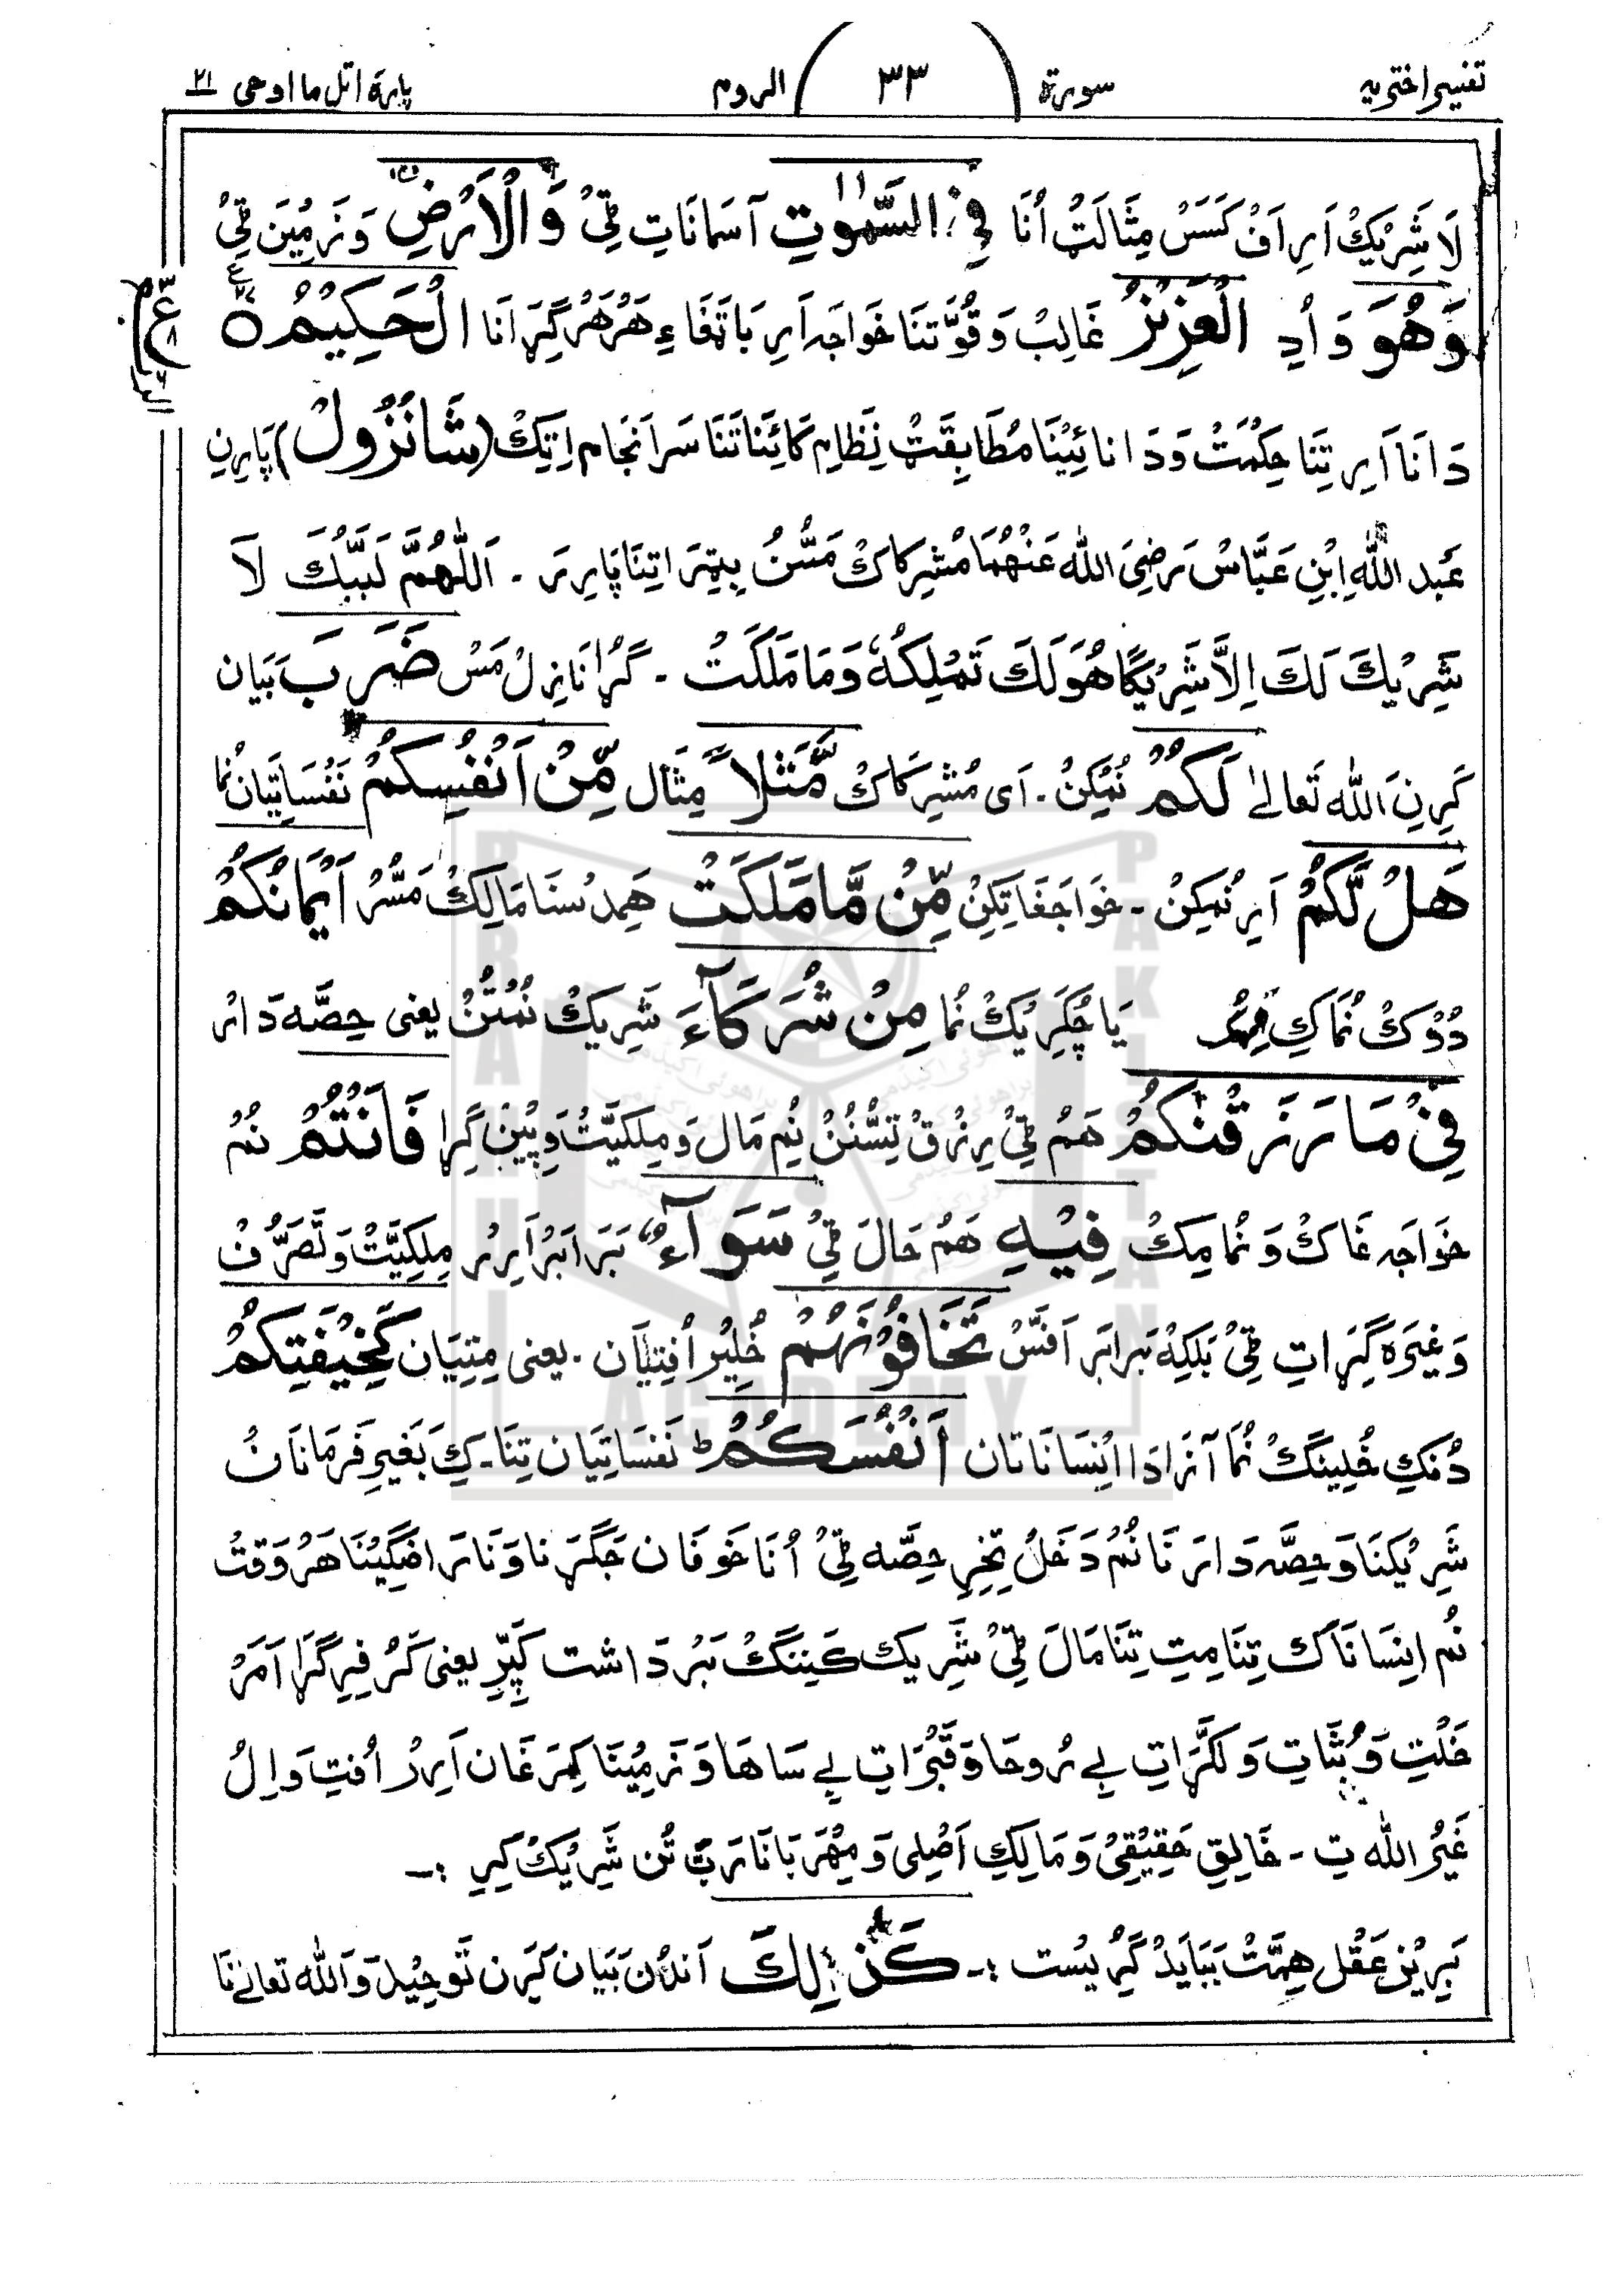 تفسیر اختریه سورة ٣٣ الروم پارہ اتل ما اوحی ٢١
لَا شَرِیْكْ اَرِ اَفْ كَسَسْ مِثَالَتْ اُنَا فِی السَّمٰوٰتِ آسَمانَاتِ ٹِیْ وَالْاَرْضِ وَ زَمِیْنَ ٹِیْ
وَهُوَ وَ اُدِ الْعَزِیْزُ غَالِبْ وَ قُوَّتنَا خَوَاجَہ اَرِ بَاتَغَاءِ هَرْهَرْ گِرَانَا الْحَكِیْمُ ٥
دَانَا اَرِ تِنَا حِكْمَتْ وَ دَانائِیْنَا مُطَابِقَتْ نِظَامِ كَائِنَاتَنَا سَرَ اَنجَام اِتِكْ (شَانْزُولْ) پَارِنِ
عَبد اللّٰہِ اِبْنِ عَبَّاسْ رَضِیَ اللّٰہ عَنْهُمَا مُشِركاكْ مَسُّنُ بِیتِرَ اتِنَا پَارِرَ ۔ اَللّٰهُمَّ لَبَّیْكَ لَا
شَرِیْكَ لَكَ اِلَّا شَرِیْكًا هُوَ لَكَ تَمْلِكُهٗ وَمَا مَلَكَتْ ۔ گُرَا نَازِلْ مَسْ ضَرَبَ بَیَان
كَرِنِ اللّٰہ تَعَالٰے لَكُمْ نُمْكِنْ ۔ اَی مُشِرِكَاكْ مَّثَلًا مِثَال مِّنْ اَنْفُسِكُمْ نَفْسَاتِیَان نُمَا
هَلْ لَّكُمْ اَرِ نُمْكِنْ ۔ خَوَاجَغَاتَكِنْ مِّنْ مَّا مَلَكَتْ هَمدُسنَا مَالِكْ مَسُّرْ اَیْمَانُكُمْ
دُوْكْ نُمَا كِ یَا چُكَرِیكْ نُمَا مِنْ شُرَكَآءَ شَرِیكْ نُمْتُنْ یعنی حِصَّہ دَارْ
فِیْ مَا رَزَقْنٰكُمْ هَمُ ٹِیْ رِزْقْ تِسُّنُنْ نُم مَال وَ مِلكِیَّتْ وَ پِیْنْ گِرَا فَاَنْتُمْ نُمْ
خَوَاجَہ غَاكْ وَ نُمَا مِكْ فِیْهِ هَمُ حَالَ ٹِیْ سَوَآءٌ بَرَابَرْ اَرِرْ مِلكِیَّتْ وَ تَصَرُّفْ
وَغَیرَہ گِرَاتِ ٹِیْ بَلكِهْ بَرَابَر اَفَسْ تَخَافُوْنَهُمْ خُلِیْر اُفتِیَان ۔ یعنی مِتِیَان كَخِیْفَتِكُمْ
دُنكِ خُلِینگْ نُمَا آزَادَا اِنسَانَاتَان اَنْفُسَكُمْ ط نَفسَاتِیَان تِنَا ۔ كِ بَغیرِ فَرمَانَانْ
شَرِیْكَنَا وَ حِصَّہ دَارَنَا نُمْ دَخَلْ تِخِرِ حِصَّہ ٹِیْ اُنَا خَوفَان جَگَرَنَا وَ نَارَاضگِیْنَا هَرْوَقتْ
نُم اِنسَانَاكْ تِنَا مِتِ تِنَا مَالَ ٹِیْ شَرِیك كَننگْ بَرْدَاشت كَپِّرِ یعنی كَرُ فِرِ گُرَا اَمَرْ
خَلْتِ وَ بُتَاتِ وَ لكَّرَاتِ بے رُوحَا وَ قَبْرَاتِ بے سَاهَا وَ زَمِیْنَا كِیرَغَان اَرِرْ اُفتِ وَ اِلُ
غَیْرُ اللّٰہ تِ ۔ خَالِقِ حَقِیْقِیْ وَ مَالِكِ اَصْلِی وَ مِهْرَبَانَا رَبَّ تُن شَرِیْكْ كَرِ :۔
بَرِیْنِ عَقْل هِمَّتْ بَبَایَدْ گِرِیْست :۔ كَذٰلِكَ اَنْدُن بَیَان كَرِن تَوحِیْدَ وَ اَللّٰہ تعالٰے نَا